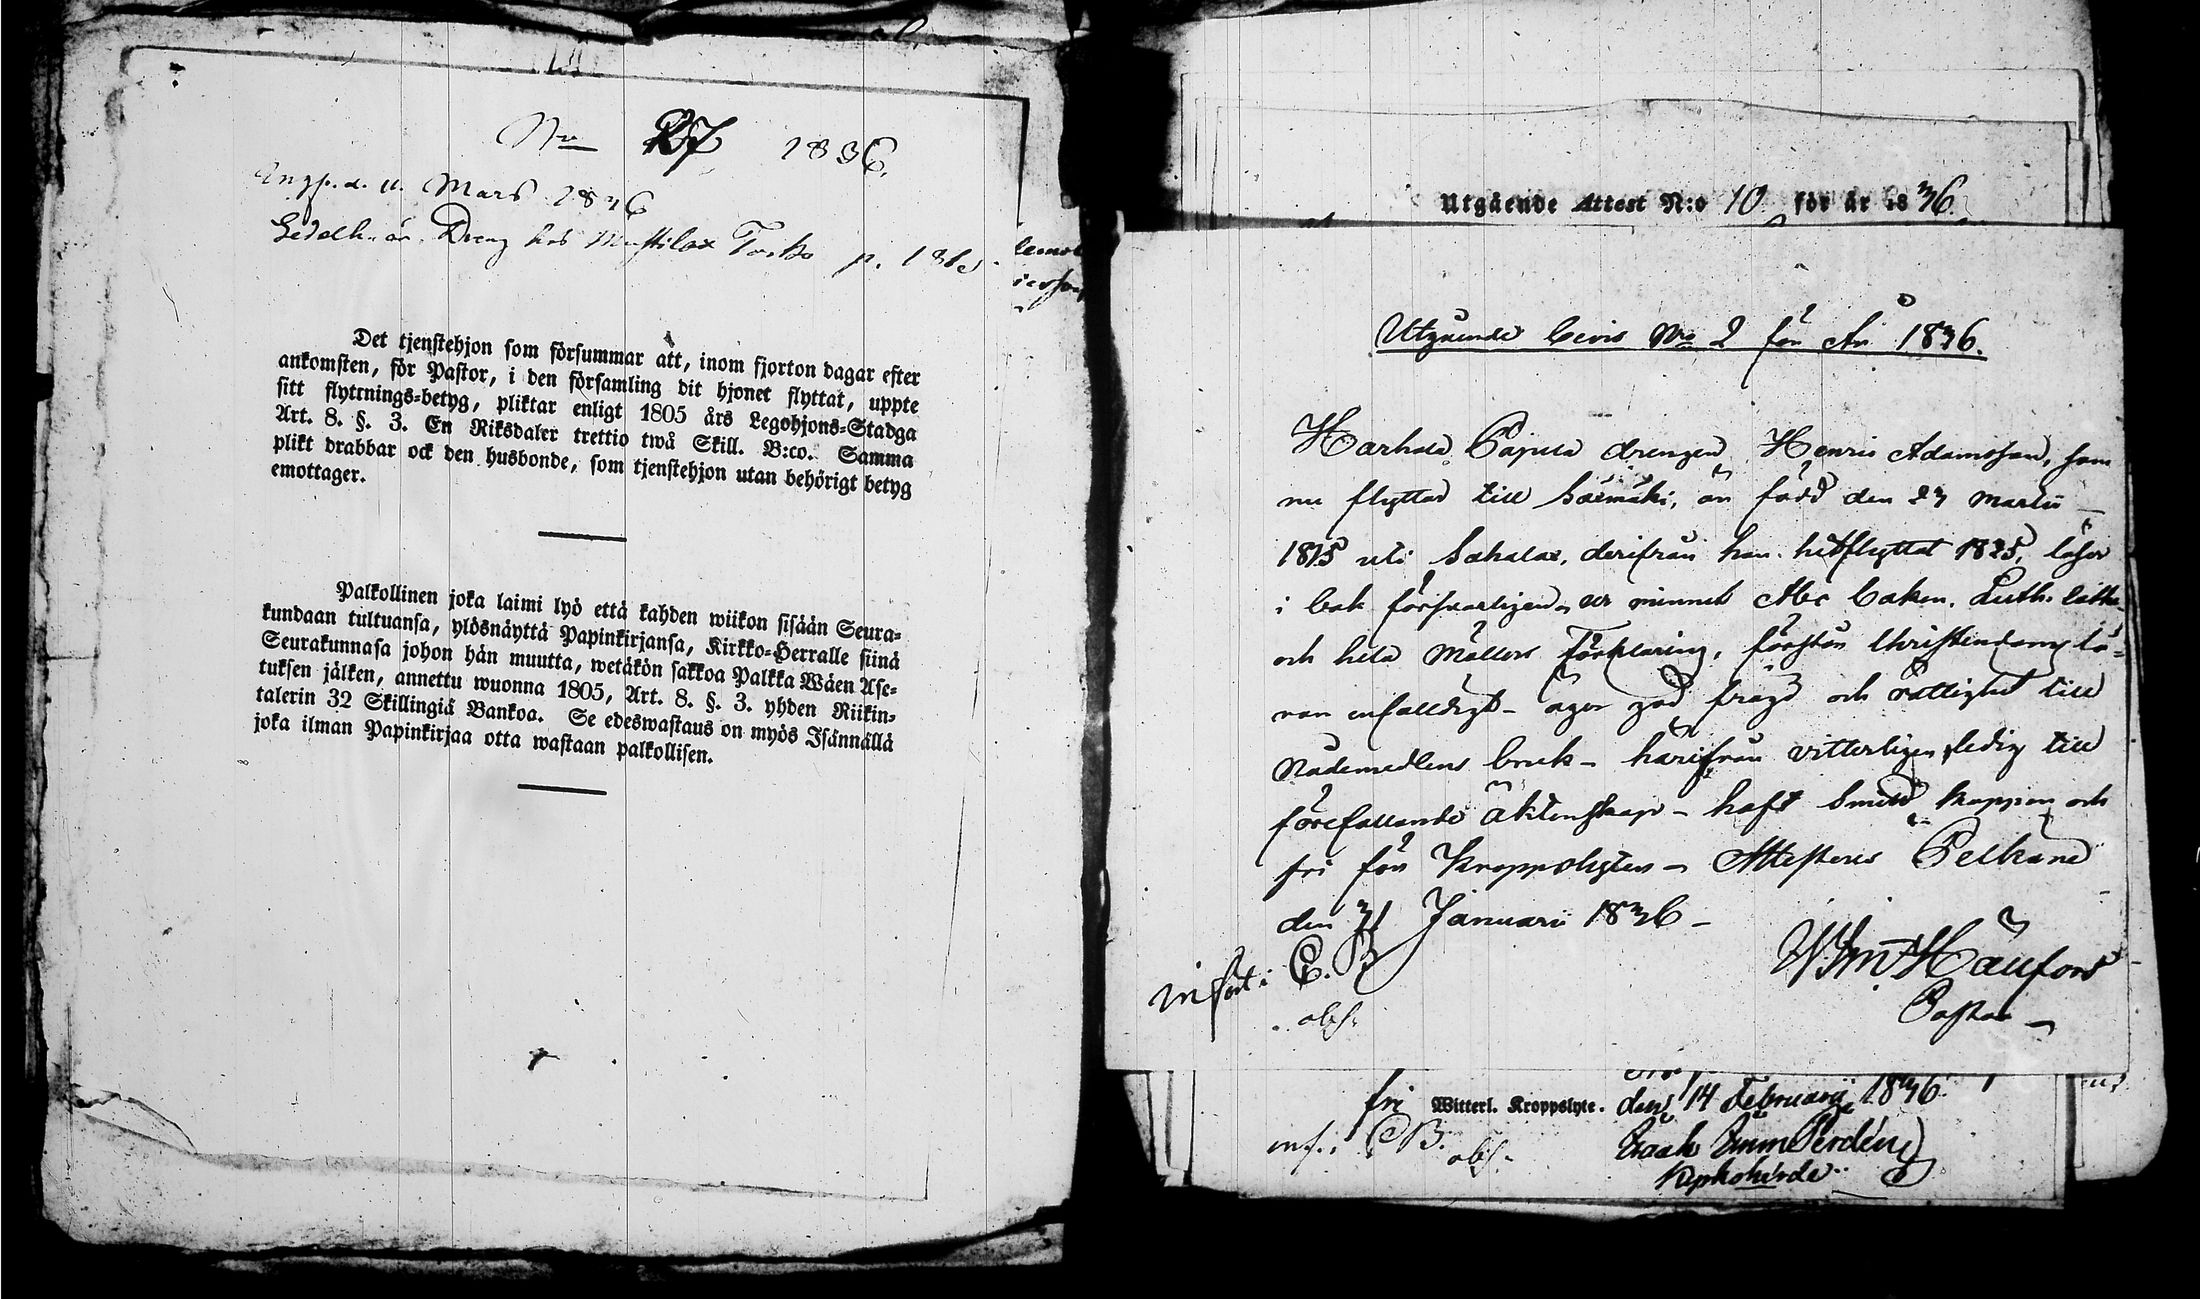 No 27 1836.
Mars 1836
Dreng hos Torko p.
Det tjenstehjon som försummar att, inom fjorton dagar efter
ankomsten, för Pastor, i den församling dit hjonet flyttat, uppte
sitt flyttnings-betyg, pliktar enligt 1805 års Legohjons-Stadga
Art. 8. §. 3. En Riksdaler trettio twå Skill. B:co. Samma
plikt drabbar ock den husbonde, som tjenstehjon utan behörigt betyg
emottager.
Palkollinen joka laimi lyö että kahden wiikon sisään Seura-
kundaan tultuansa, ylösnäyttä Papinkirjansa, Kirkko-Herralle siinä
Seurakunnasa johon hän muutta, wetäkön sakkoa Palkka Wäen Ase-
tuksen jälken, annettu wuonna 1805, Art. 8. §. 3. yhden Riikin-
talerin 32 Skillingiä Bankoa. Se edeswastaus on myös Isännällä
joka ilman Papinkirjaa otta wastaan palkollisen.
Utgående Attest N:o 10 för år 1836.
Utgående bevis No 2 för År 1836.
Harhala Papula drengen Henric Adamsson, som
nu flyttar till Sääxmäki, är född den 27 Martii
1815 uti Sahalax, derifrån han hitflyttat 1825, läser
i bok försvarligen, ur minnet Abc boken, Luth.
och hela Möllers Förklaring, förstår Christendoms lä-
ran enfalldigt - äger god frägd och rättighet till
Nådemedlens bruk - härifrån vitterligen ledig till
förefallande äktenskap - haft Smitt koppor och
fri för Kroppslyten - Attesteras Pelkäne
den 31 Januarii 1836 -
infört i C.B.
obs.
Pastor
fri Witterl. Kroppslyte. den 14 Februarii 1836.
inf. i CB. obs.
Isaak
Kyrkoherde